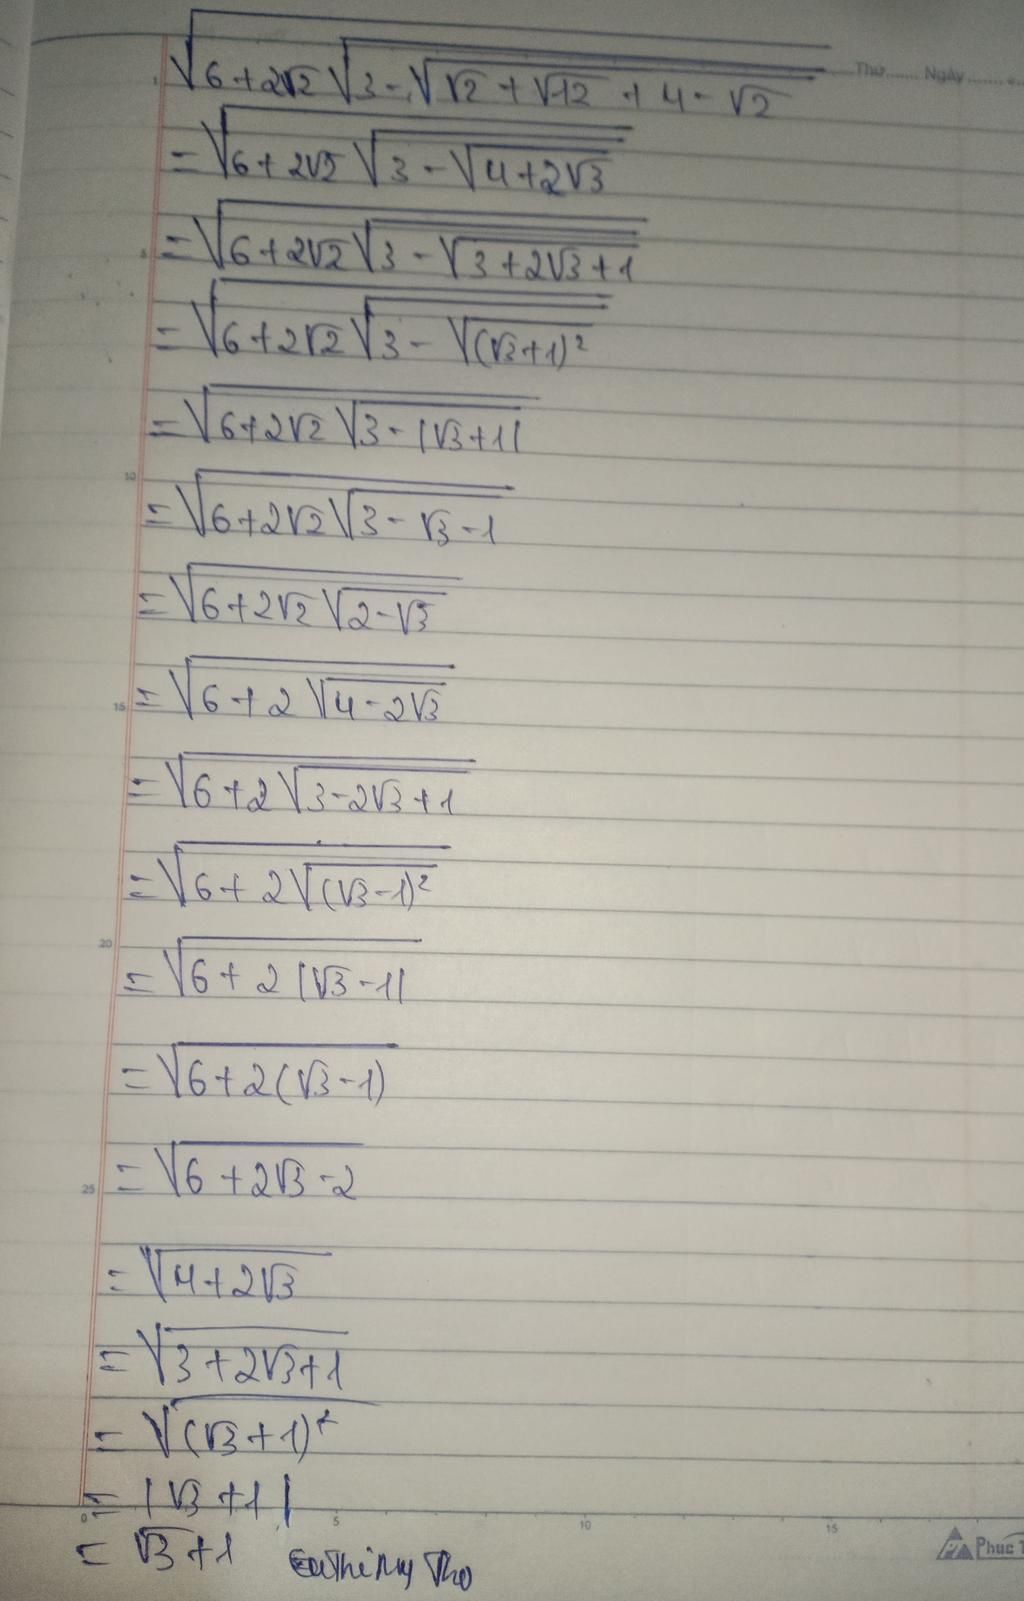 Thứ...... Ngày.......
√(6+2√2√(3-√(√2+√12+4-√2)))
=√(6+2√2√(3-√(4+2√3)))
=√(6+2√2√(3-√(3+2√3+1)))
=√(6+2√2√(3-√((√3+1)²)))
=√(6+2√2√(3-|√3+1|))
=√(6+2√2√(3-√3-1))
=√(6+2√2√(2-√3))
=√(6+2√(4-2√3))
=√(6+2√(3-2√3+1))
=√(6+2√((√3-1)²))
=√(6+2|√3-1|)
=√(6+2(√3-1))
=√(6+2√3-2)
=√(4+2√3)
=√(3+2√3+1)
=√((√3+1)²)
=|√3+1|
=√3+1
5
10
15
20
25
0 5 10 15
Phuc